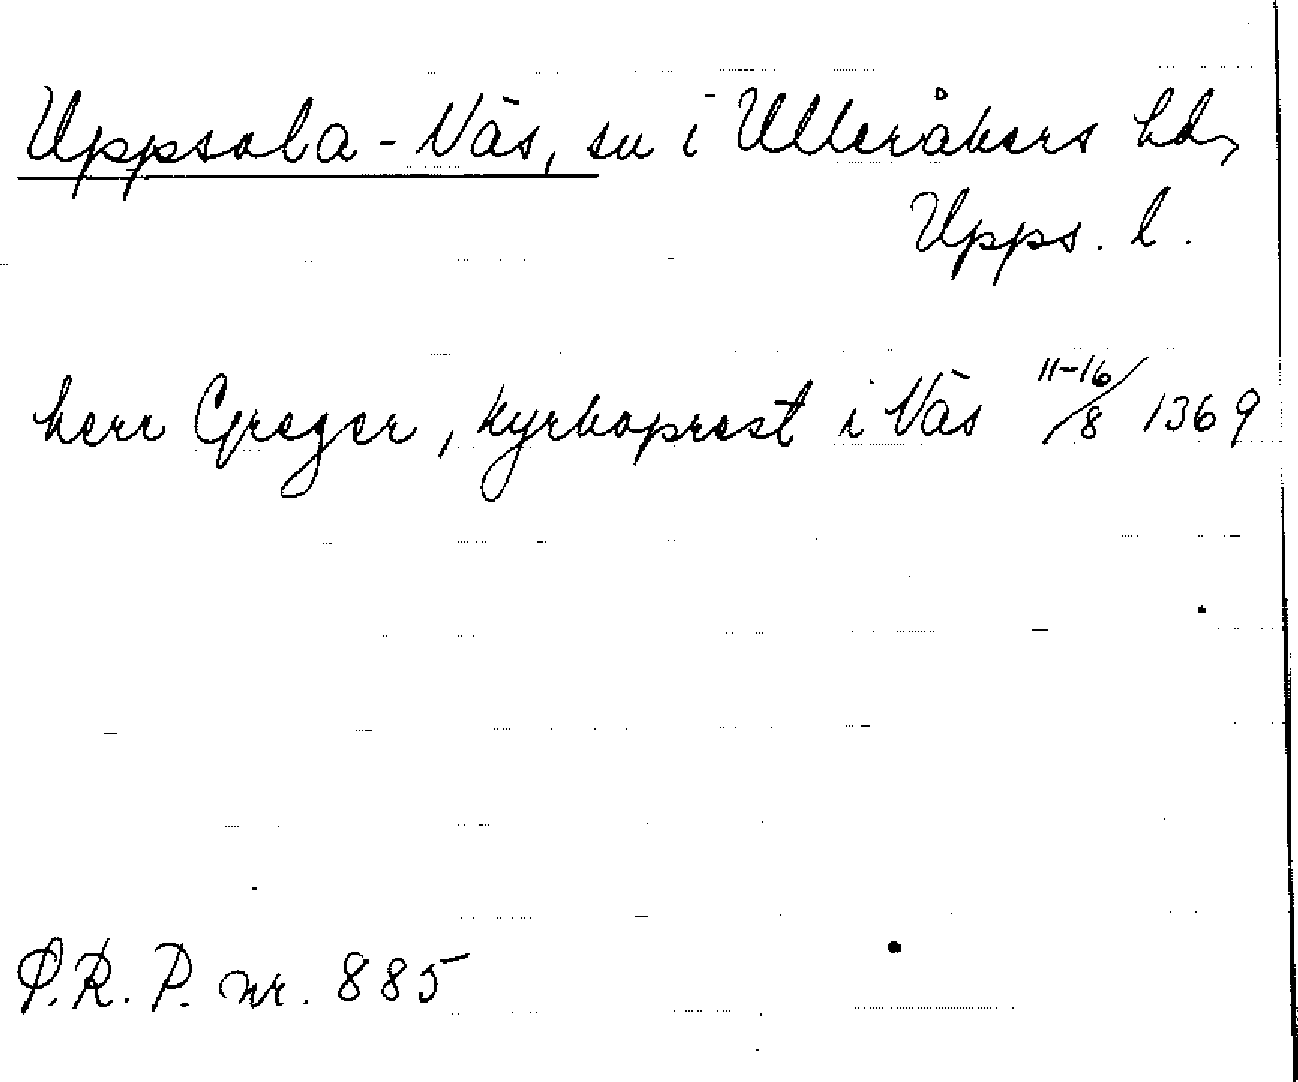 Uppsala-Näs, sn i Ulleråkers hd,
Upps. l.
herr Greger, kyrkoprest i Näs 11-16/8 1369
P.R.P. nr. 885